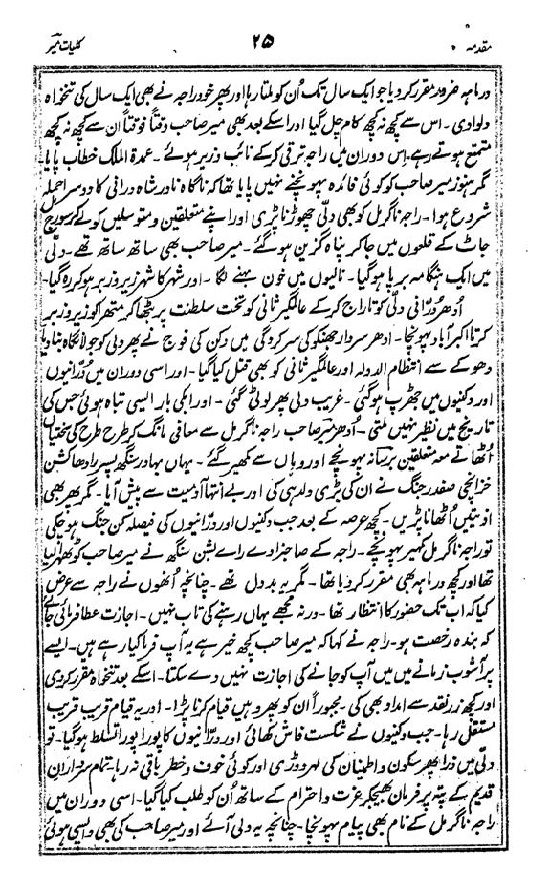 مقدمہ ۲۵ کلیات میر
درماہہ ضرور مقرر کر دیا جو ایک سال تک اُن کو ملتا رہا اور پھر خود راجہ نے بھی ایک سال کی تنخواہ
دلوادی۔ اس سے کچھ نہ کچھ کام چل گیا اور اسکے بعد بھی میر صاحب وقتاً فوقتاً ان سے کچھ نہ کچھ
متمتع ہوتے رہے۔ اس دوران میں راجہ ترقی کر کے نائب وزیر ہوئے۔ عمدۃ الملک خطاب پایا۔
مگر ہنوز میر صاحب کو کوئی فائدہ پہونچنے نہیں پایا تھا کہ ناگاہ نادر شاہ درانی کا دوسرا حملہ
شروع ہوا۔ راجہ ناگرمل کو بھی دلّی چھوڑنا پڑی اور اپنے متعلقین و متوسلین کو لے کر سورج
جاٹ کے قلعوں میں جا کر پناہ گزین ہو گئے۔ میر صاحب بھی ساتھ ساتھ تھے۔ دلّی
میں ایک ہنگامہ برپا ہو گیا۔ نالیوں میں خون بہنے لگا۔ اور شہر کا شہر زیر و زبر ہو کر رہ گیا۔
اُدھر دُرّانی دلّی کو تاراج کر کے عالمگیر ثانی کو تخت سلطنت پر بٹھا کر متھرا کو زیر و زبر
کرتا اکبر آباد پہونچا۔ ادھر سردار جھنکو کی سرکردگی میں دکن کی فوج نے پھر دلی کو جولانگاہ بنا دیا
دھوکے سے انتظام الدولہ اور عالمگیر ثانی کو بھی قتل کیا گیا۔ اور اسی دوران میں دُرّانیوں
اور دکنیوں میں جھڑپ ہو گئی۔ غریب دلی پھر لوٹی گئی۔ اور ابکی بار ایسی تباہ ہوئی جس کی
تاریخ میں نظیر نہیں ملتی۔ اُدھر میر صاحب راجہ ناگرمل سے معافی مانگ کر طرح طرح کی سختیاں
اُٹھاتے معہ متعلقین برسانہ پہونچے اور وہاں سے کمھیر گئے۔ یہاں بہادر سنگھ پسر رادھا کشن
خزانچی صفدر جنگ نے ان کی بڑی دلدہی کی اور بے انتہا آدمیت سے پیش آیا۔ مگر پھر بھی
اذیتیں اُٹھانا پڑیں۔ کچھ عرصہ کے بعد جب دکنیوں اور درّانیوں کی فیصلہ کن جنگ ہو چکی
تو راجہ ناگرمل کمھیر پہونچے۔ راجہ کے صاحبزادے رائے بشن سنگھ نے میر صاحب کو ٹھہرا لیا
تھا اور کچھ درماہہ بھی مقرر کر دیا تھا۔ مگر یہ بد دل تھے۔ چنانچہ اُنھوں نے راجہ سے عرض
کیا کہ اب تک حضور کا انتظار تھا۔ ورنہ مجھے یہاں رہنے کی تاب نہیں۔ اجازت عطا فرمائی جائے
کہ بندہ رخصت ہو۔ راجہ نے کہا کہ میر صاحب کچھ خیر ہے یہ آپ فرما کیا رہے ہیں۔ ایسے
پر آشوب زمانے میں میں آپ کو جانے کی اجازت نہیں دے سکتا۔ اسکے بعد تنخواہ مقرر کر دی
اور کچھ زر نقد سے امداد بھی کی۔ مجبوراً ان کو پھر وہیں قیام کرنا پڑا۔ اور یہ قیام قریب قریب
مستقل رہا۔ جب دکنیوں نے شکست فاش کھائی اور درّانیوں کا پورا پورا تسلط ہو گیا۔ تو
دلّی میں ذرا پھر سکون و اطمینان کی لہر دوڑی اور کوئی خوف و خطر باقی نہ رہا۔ تمام سرداران
قدیم کے پتہ پر فرمان بھیجکر عزت و احترام کے ساتھ اُن کو طلب کیا گیا۔ اسی دوران میں
راجہ ناگرمل کے نام بھی پیام پہونچا۔ چنانچہ یہ دلی آئے اور میر صاحب کی بھی واپسی ہوئی